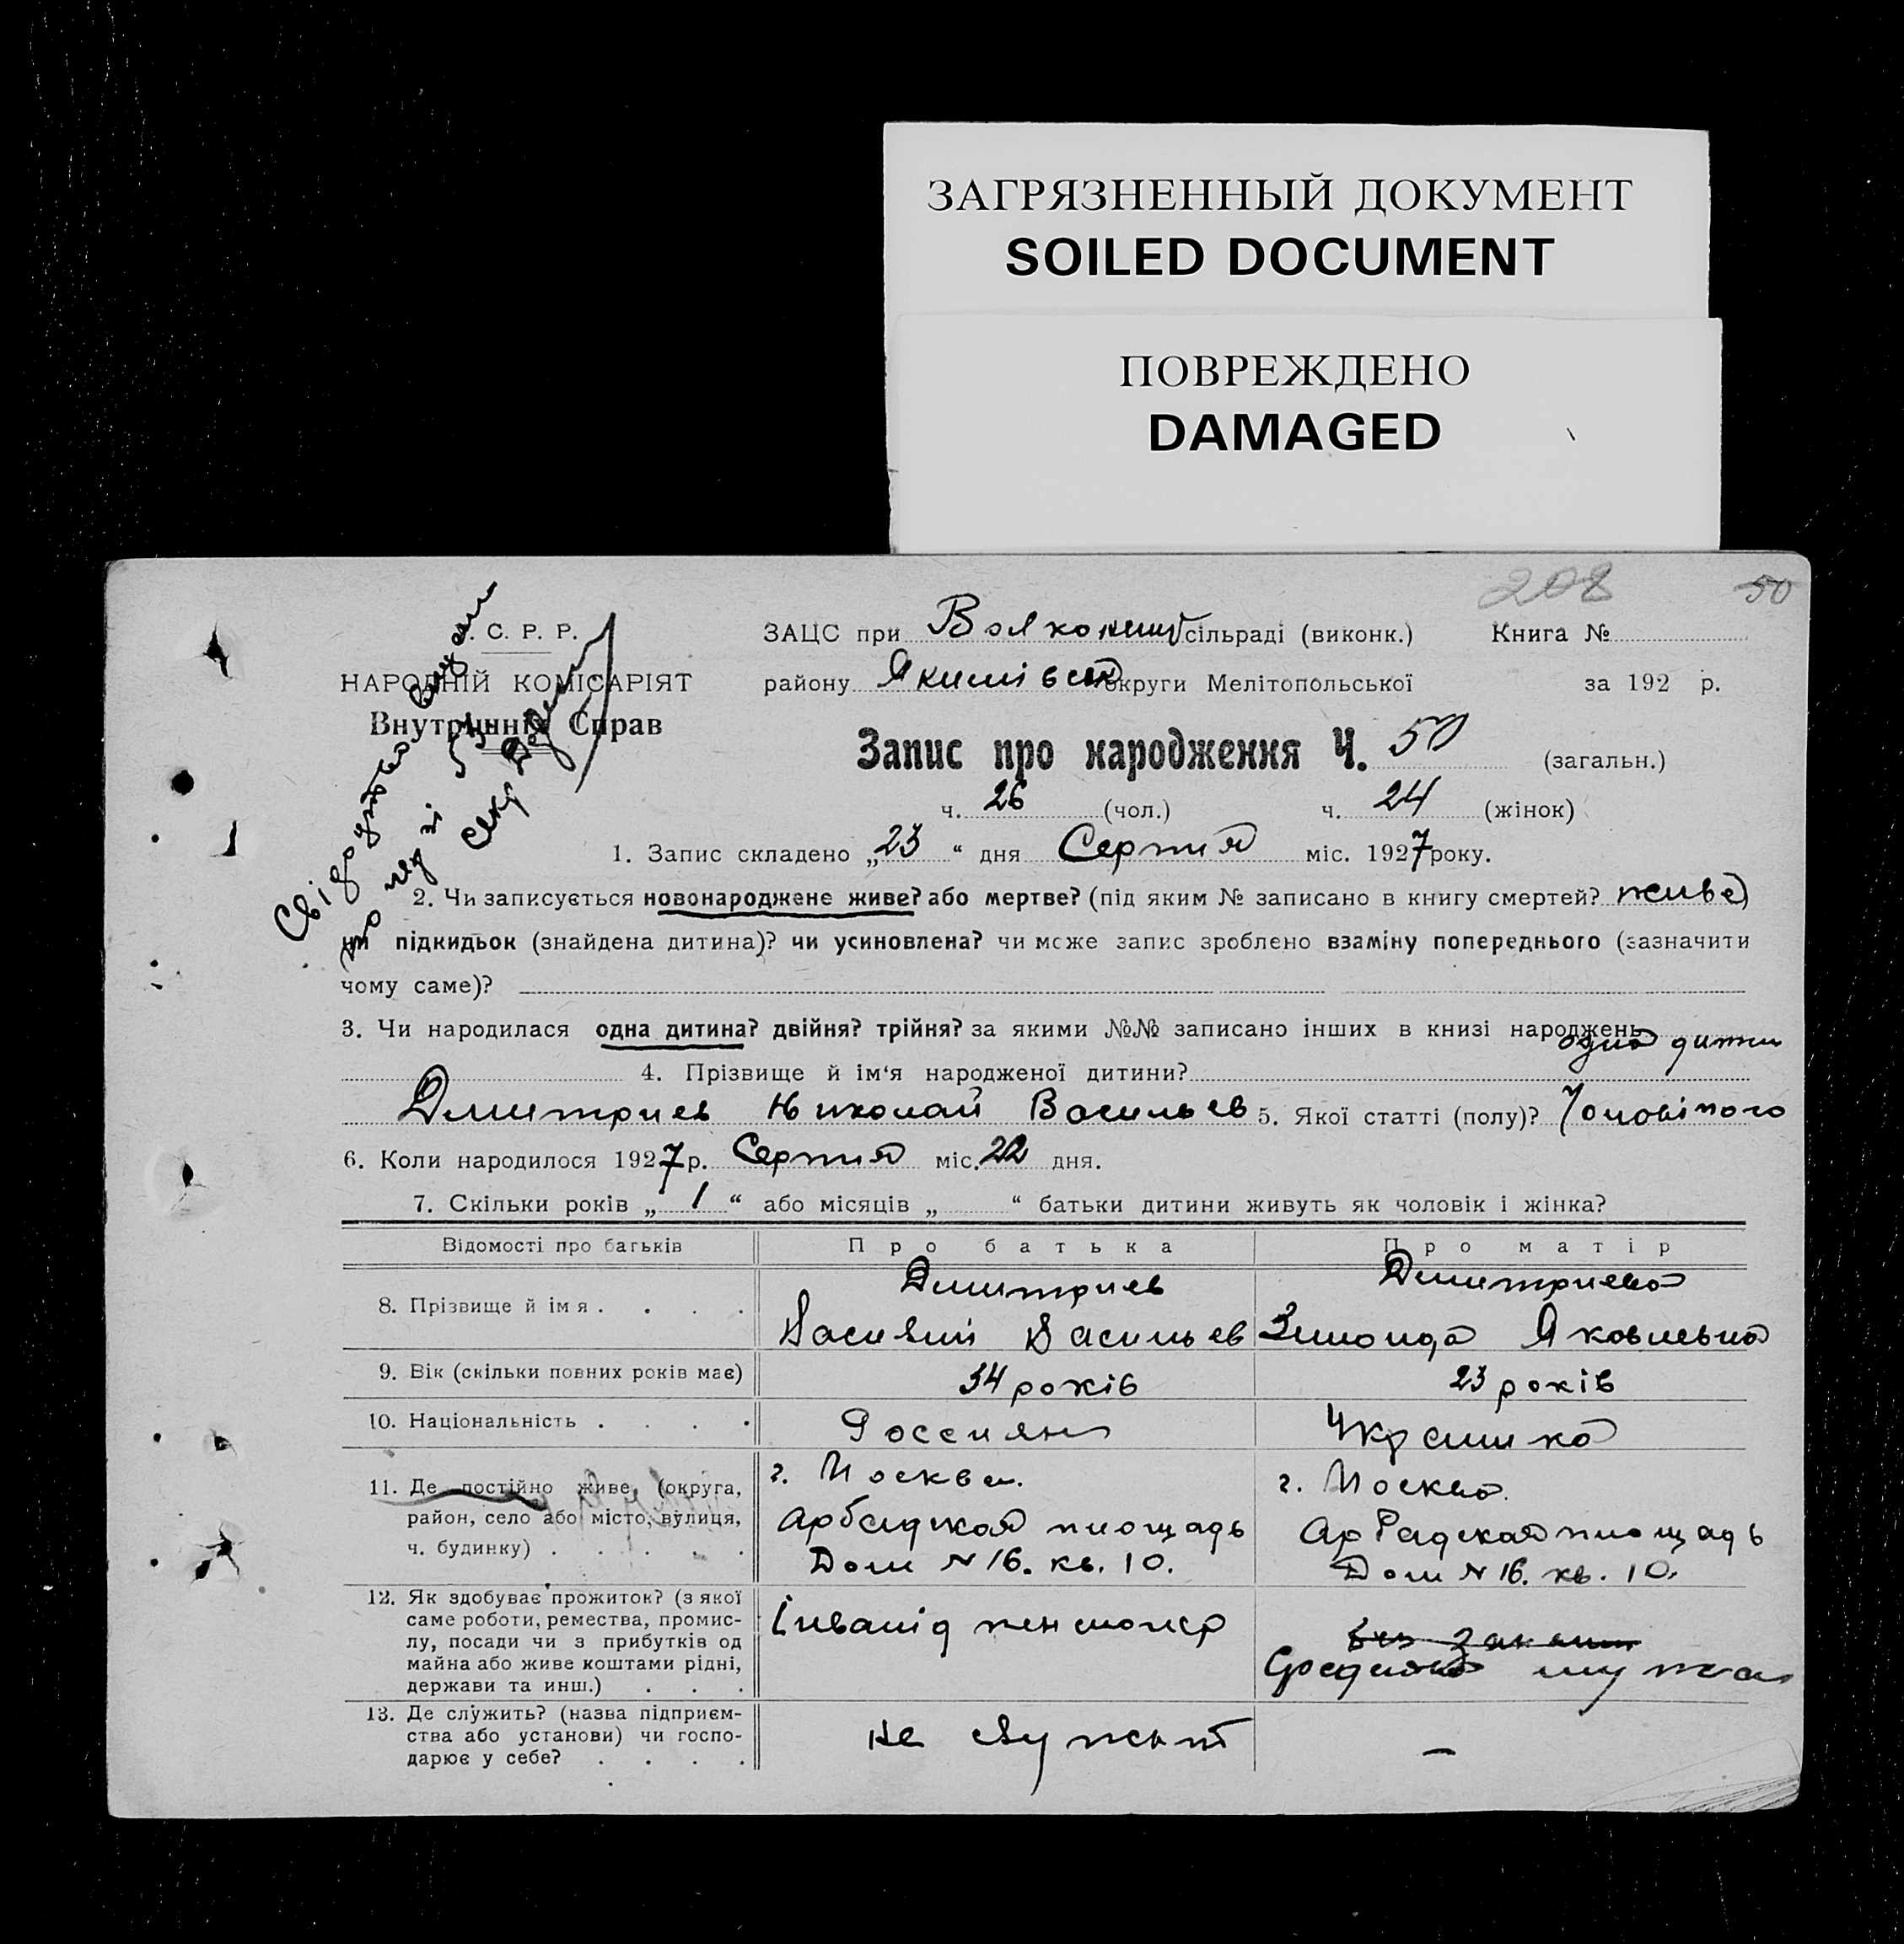 ЗАГРЯЗНЕННЫЙ ДОКУМЕНТ
SOILED DOCUMENT
ПОВРЕЖДЕНО
DAMAGED
208 50
С. Р. Р. ЗАЦС при сільраді (виконк.) Книга №
НАРОДНІЙ КОМІСАРІЯТ району Якимівськ округи Мелітопольської за 192 р.
Внутрішніх Справ
Запис про народження Ч. 50 (загальн.)
ч. 26 (чол.) ч. 24 (жінок)
1. Запис складено „23“ дня Серпня міс. 1927 року.
2. Чи записується новонароджене живе? або мертве? (під яким № записано в книгу смертей? живе)
чи підкидьок (знайдена дитина)? чи усиновлена? чи може запис зроблено взаміну попереднього (зазначити
чому саме)?
3. Чи народилася одна дитина? двійня? трійня? за якими №№ записано інших в книзі народжень одна
4. Прізвище й ім‘я народженої дитини?
Дмитриев Николай Васильев 5. Якої статті (полу)? Чоловічого
6. Коли народилося 1927 р. Серпня міс. 22 дня.
7. Скільки років „1“ або місяців „ “ батьки дитини живуть як чоловік і жінка?
Відомості про батьків Про батька Про матір
8. Прізвище й імя . . . . Дмитриев Дмитриева
Василий Васильев Зинаида Яковлевна
9. Вік (скільки повних років має) 34 років 23 років
10. Національність . . . . Россиян Українка
11. Де постійно живе (округа, г. Москва. г. Москва.
район, село або місто, вулиця, Арбадская площадь Арбадская площадь
ч. будинку) . . . . . Дом N 16. кв. 10. Дом N 16. кв. 10.
12. Як здобуває прожиток? (з якої
саме роботи, ремества, промис- Інвалід пенсионер
лу, посади чи з прибутків од
майна або живе коштами рідні, мужа
держави та инш.) . . .
13. Де служить? (назва підприєм-
ства або установи) чи госпо- не служит –
дарює у себе? . . . .